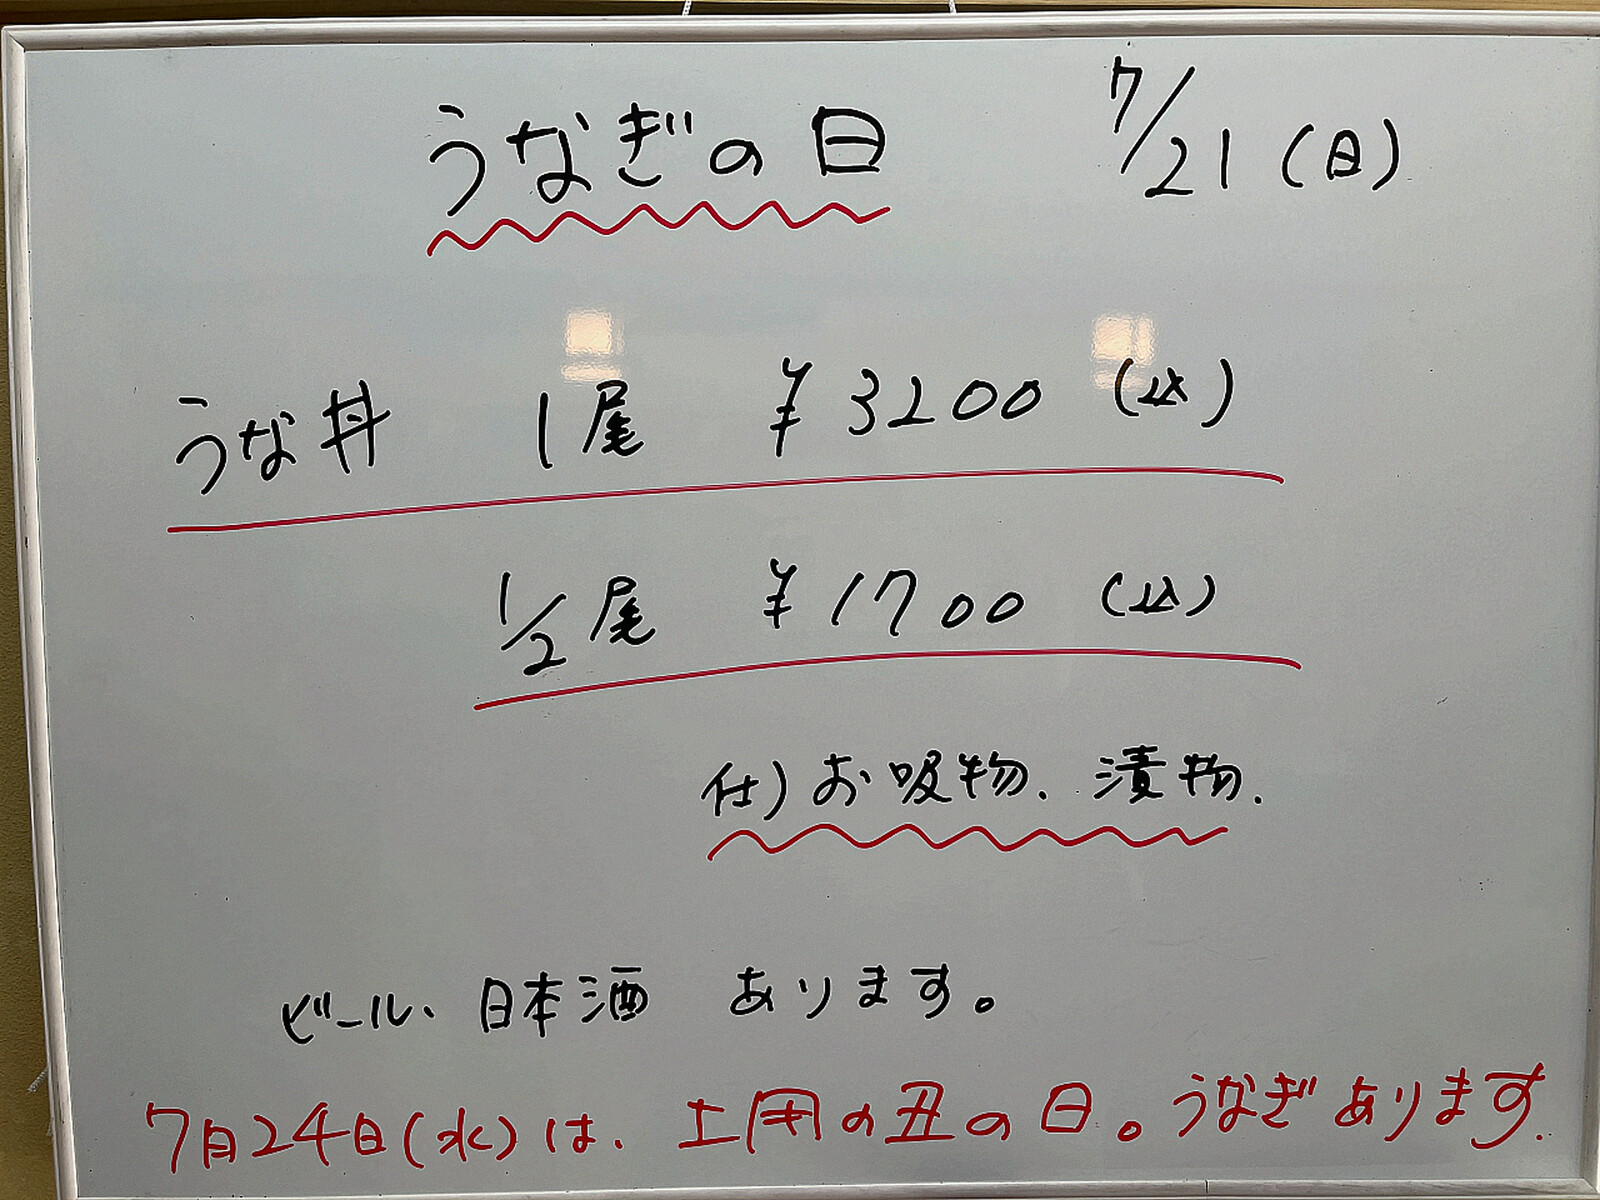 うなぎの日 7/21(日)
うな丼 1尾 ¥3200(込)
1/2尾 ¥1700(込)
付)お吸物、漬物、
ビール、日本酒 あります。
7月24日(水)は、土用の丑の日。うなぎあります.